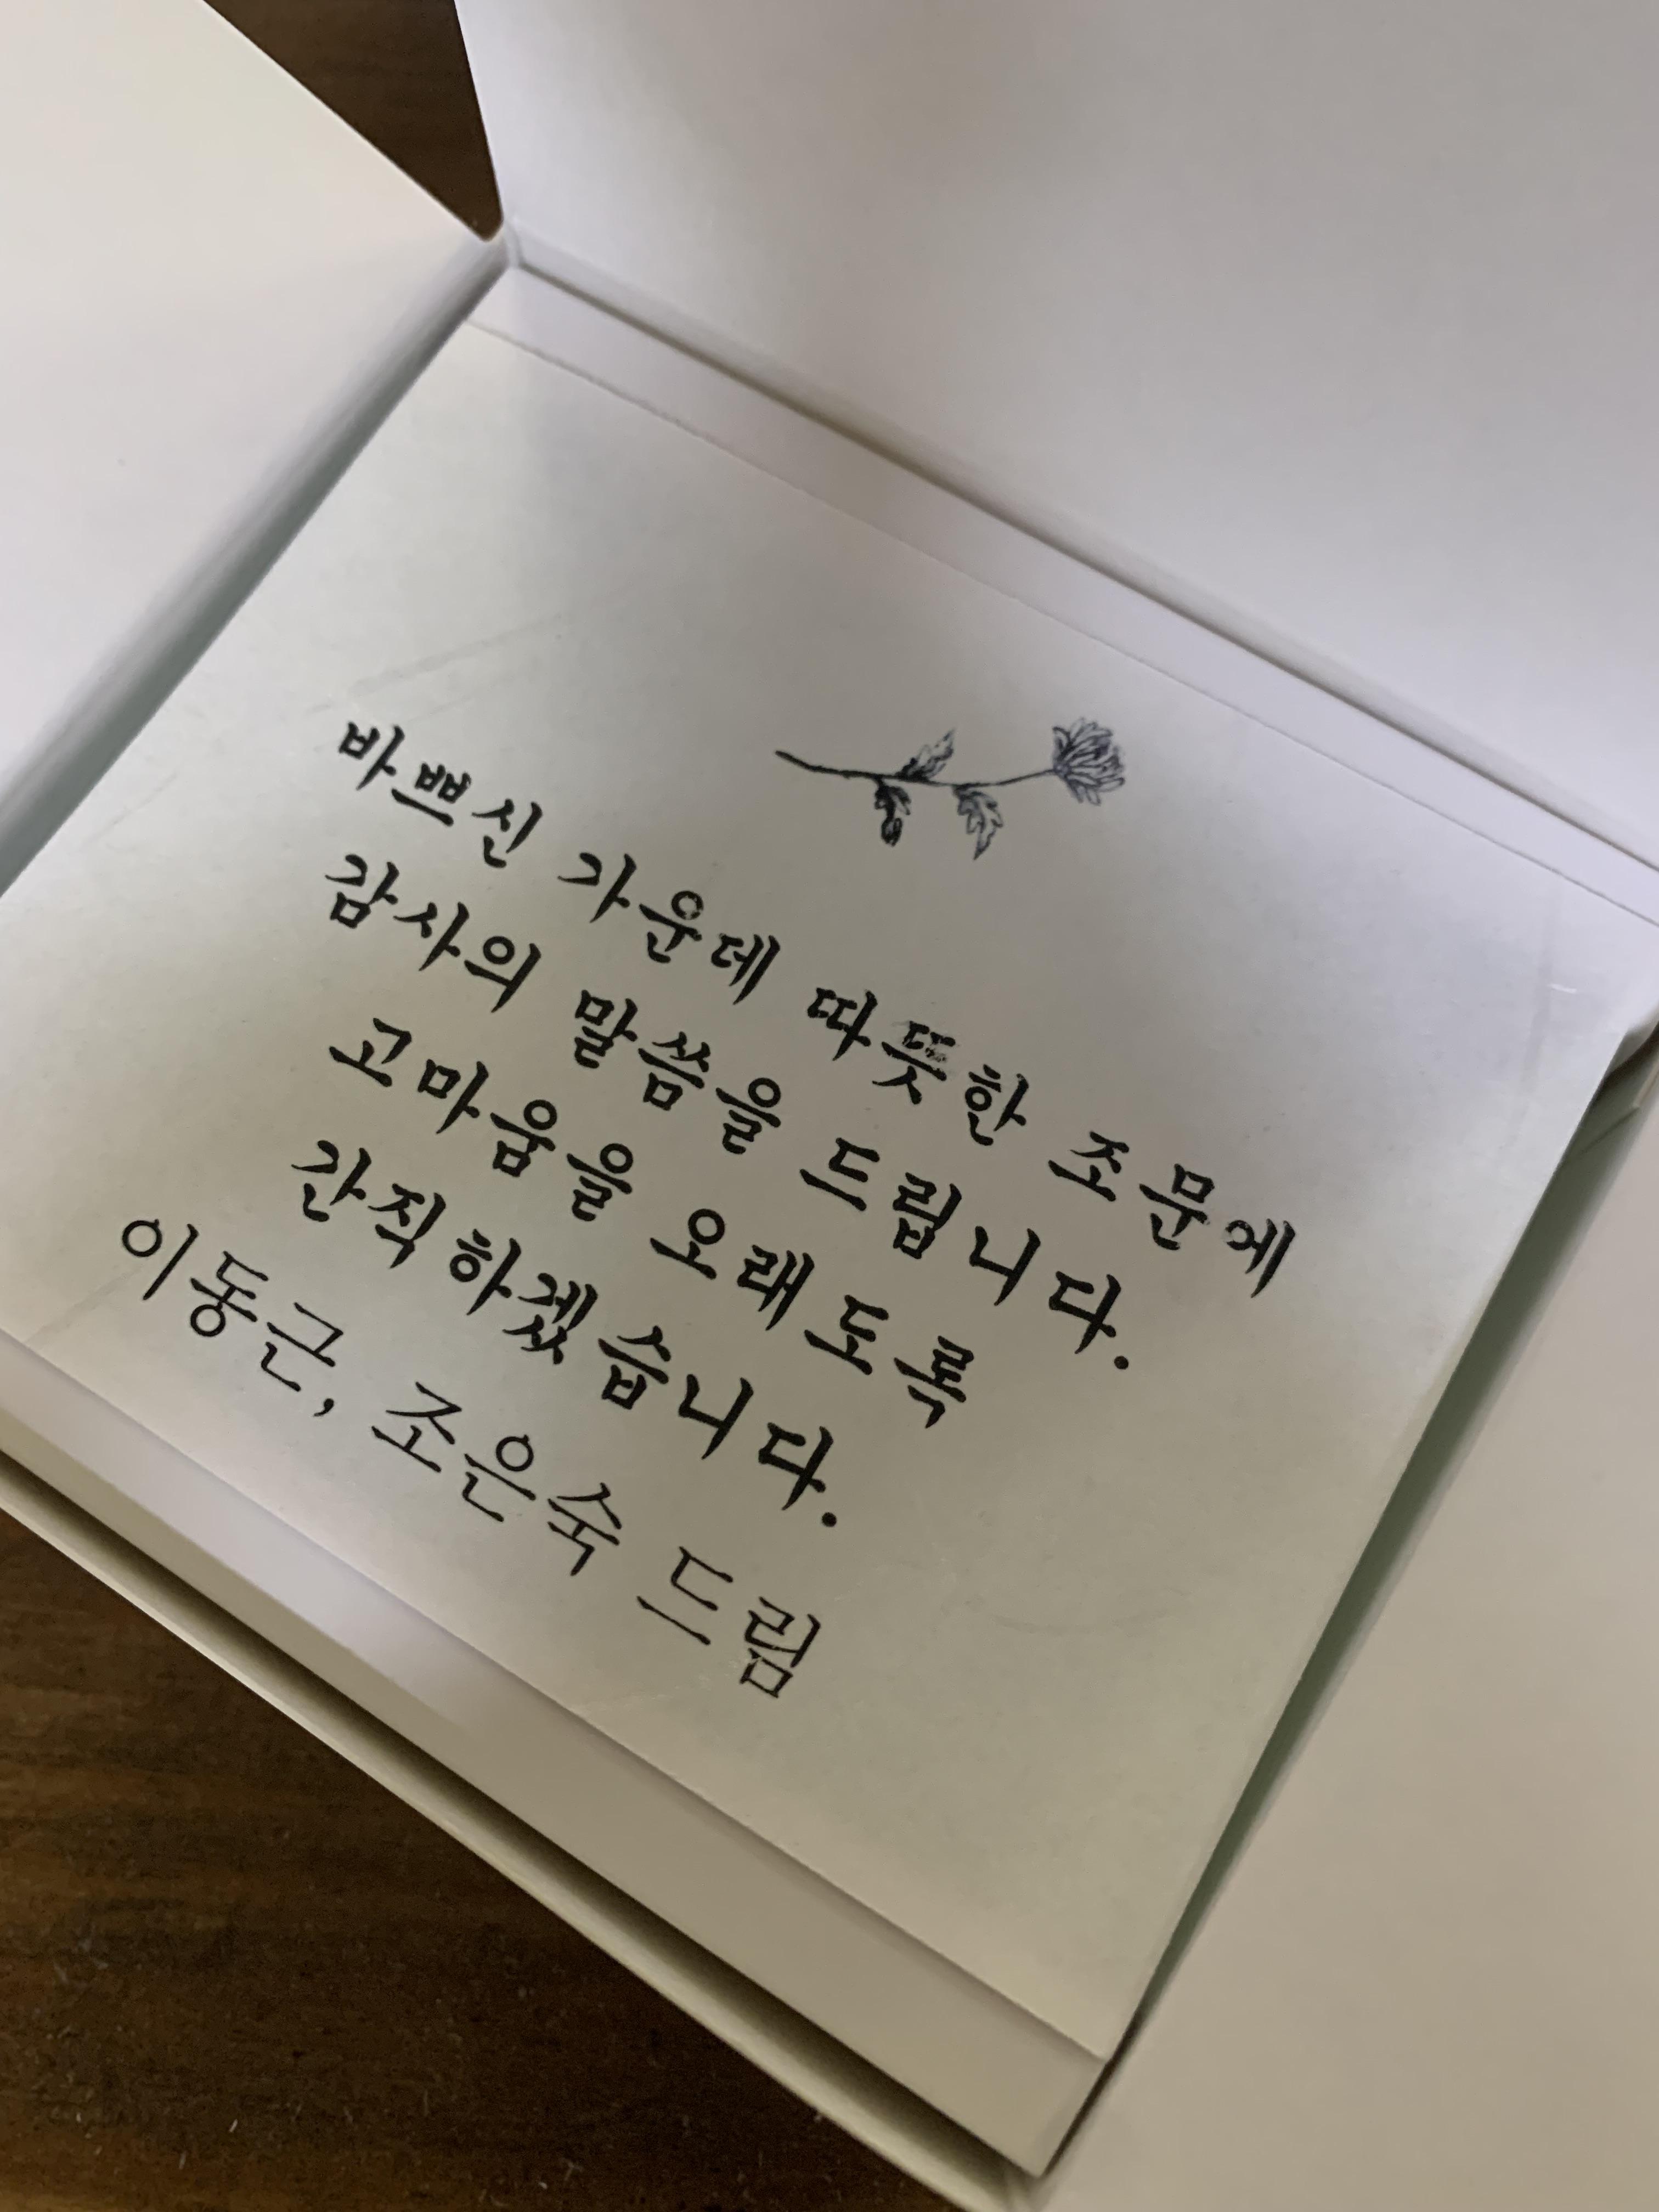 바쁘신 가운데 따뜻한 조문에
감사의 말씀을 드립니다.
고마움을 오래도록
간직하겠습니다.
이동근, 조은숙 드림